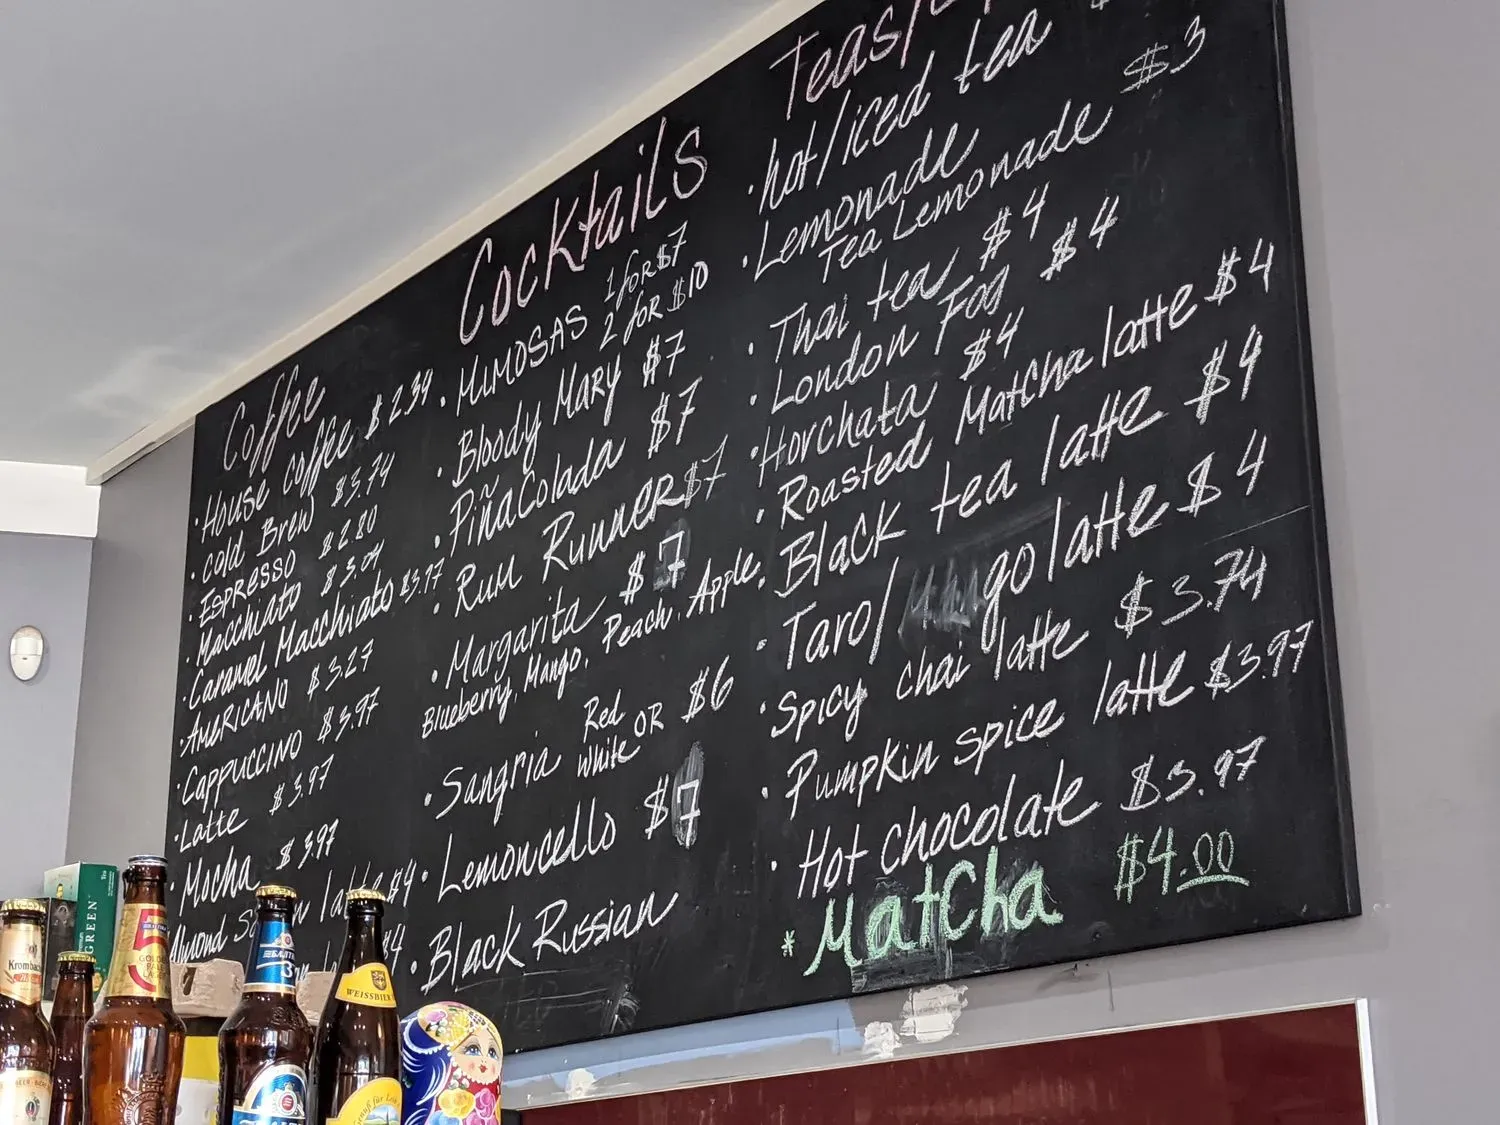 Coffee
· House coffee $2.34
· cold Brew $3.74
· ESPRESSO $2.80
· Macchiato $3.04
· Caramel Macchiato $3.97
· AMERICANO $3.27
· CAPPUCCINO $3.97
· Latte $3.97
· Mocha $3.97
Almond latte $4
$4
Cocktails
· MIMOSAS 1 for $7
2 for $10
· Bloody Mary $7
· Piña Colada $7
· Rum Runner $7
· Margarita $7
Blueberry, Mango, Peach, Apple
· Sangria Red OR White $6
· Lemoncello $7
· Black Russian
Teas/
· hot/iced tea
· Lemonade $3
Tea Lemonade
· Thai tea $4
· London Fog $4
· Horchata $4
· Roasted Matcha latte $4
· Black tea latte $4
· Taro/ go latte $4
· Spicy chai latte $3.74
· Pumpkin spice latte $3.97
· Hot chocolate $3.97
* Matcha $4.00
GREEN
Krombach
GOLDEN
PALE
LAGER
3
WEISSBIER